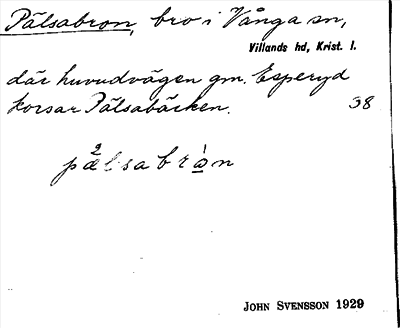 Pälsabron, bro i Vånga sn,
Villands hd, Krist. l.
där huvudvägen gm. Esperyd
korsar Pälsabäcken. 38
pælsabrån
JOHN SVENSSON 1929